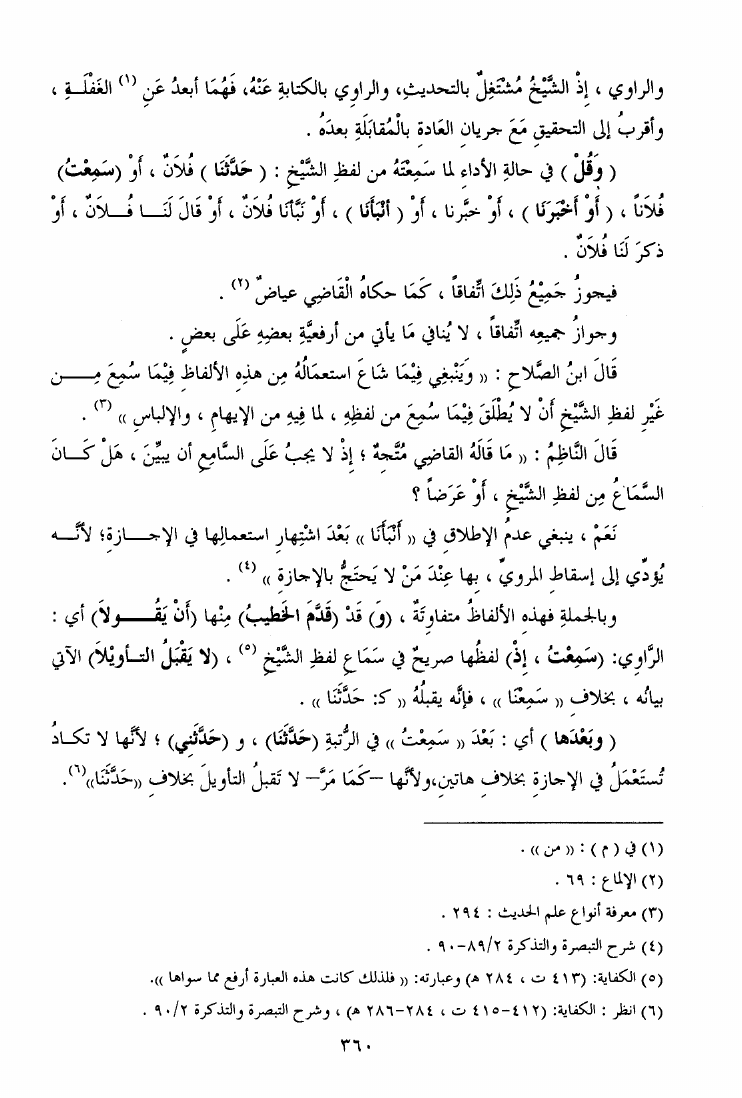 والراوي ، إذْ الشَّيْخُ مُشْتَغِلٌ بالتحديثِ، والراوِي بالكتابةِ عَنْهُ، فَهُمَا أبعدُ عَنِ (١) الغَفْلَــةِ ،
وأقربُ إلى التحقيقِ مَعَ جريانِ العَادةِ بالْمُقابَلَةِ بعدَهُ .
( وَقُلْ ) في حالةِ الأداءِ لما سَمِعْتَهُ من لفظِ الشَّيْخِ : ( حَدَّثَنَا ) فُلاَنٌ ، أوْ (سَمِعْتُ)
فُلاَناً ، ( أوْ أخْبَرَنَا ) ، أوْ خبَّرنا ، أوْ ( أنْبَأَنَا ) ، أوْ نَبَّأنَا فُلاَنٌ ، أوْ قالَ لَنَــا فُــلاَنٌ ، أوْ
ذكرَ لَنَا فُلاَنٌ .
فيجوزُ جَمِيْعُ ذَلِكَ اتِّفاقاً ، كَمَا حكاهُ الْقَاضِي عياضٌ (٢) .
وجوازُ جميعِه اتِّفاقاً ، لا يُنافي مَا يأتي من أرفعيَّةِ بعضِهِ عَلَى بعضٍ .
قَالَ ابنُ الصَّلاحِ : « وَيَنْبغِي فِيْمَا شَاعَ استعمَالُهُ مِن هذِهِ الألفاظِ فِيْمَا سُمِعَ مِــــن
غَيْرِ لفظِ الشَّيْخِ أنْ لا يُطْلَقَ فِيْمَا سُمعَ من لفظِهِ ، لما فِيهِ من الإيهامِ ، والإلباسِ » (٣) .
قَالَ النَّاظِمُ : « مَا قَالَهُ القاضِي مُتَّجهٌ ؛ إذْ لا يجبُ عَلَى السَّامعِ أن يبيِّنَ ، هَلْ كَــانَ
السَّمَاعُ مِن لفظِ الشَّيْخِ ، أوْ عَرَضاً ؟
نَعَمْ ، ينبغي عدمُ الإطلاقِ في « أنْبَأَنَا » بَعْدَ اشْتِهارِ استعمالِها في الإجــازةِ؛ لأنَّــه
يُؤدِّي إلى إسقاطِ المرويِّ ، بها عِنْدَ مَنْ لا يَحتجُّ بالإجازةِ » (٤) .
وبالجملةِ فهذه الألفاظُ متفاوتَةٌ ، (وَ) قَدْ (قَدَّمَ الخَطيبُ) مِنْها (أنْ يَقُــــولاَ) أي :
الرَّاوِي: (سَمِعْتُ ، إذْ) لفظُها صريحٌ في سَمَاعِ لفظِ الشَّيْخِ (٥) ، (لا يَقْبَلُ التــأويْلاَ) الآتي
بيانُه ، بخلافِ « سَمِعْنَا » ، فإنَّه يقبلُهُ « كـ: حَدَّثَنَا » .
( وبَعْدَها ) أي : بَعْدَ « سَمِعْتُ » في الرُّتبةِ (حَدَّثَنَا) ، و (حَدَّثَنِي) ؛ لأنَّها لا تكــادُ
تُستَعْمَلُ في الإجازةِ بخلافِ هاتينِ،ولأنَّها –كَمَا مَرَّ– لا تَقبلُ التأويلَ بخلافِ «حَدَّثَنَا»(٦).
(١) في ( م ) : « من » .
(٢) الإلماع : ٦٩ .
(٣) معرفة أنواع علم الحديث : ٢٩٤ .
(٤) شرح التبصرة والتذكرة ٨٩/٢-٩٠ .
(٥) الكفاية: (٤١٣ ت ، ٢٨٤ هـ) وعبارته: « فلذلك كانت هذه العبارة أرفع مما سواها ».
(٦) انظر : الكفاية: (٤١٢-٤١٥ ت ، ٢٨٤-٢٨٦ هـ) ، وشرح التبصرة والتذكرة ٩٠/٢ .
٣٦٠